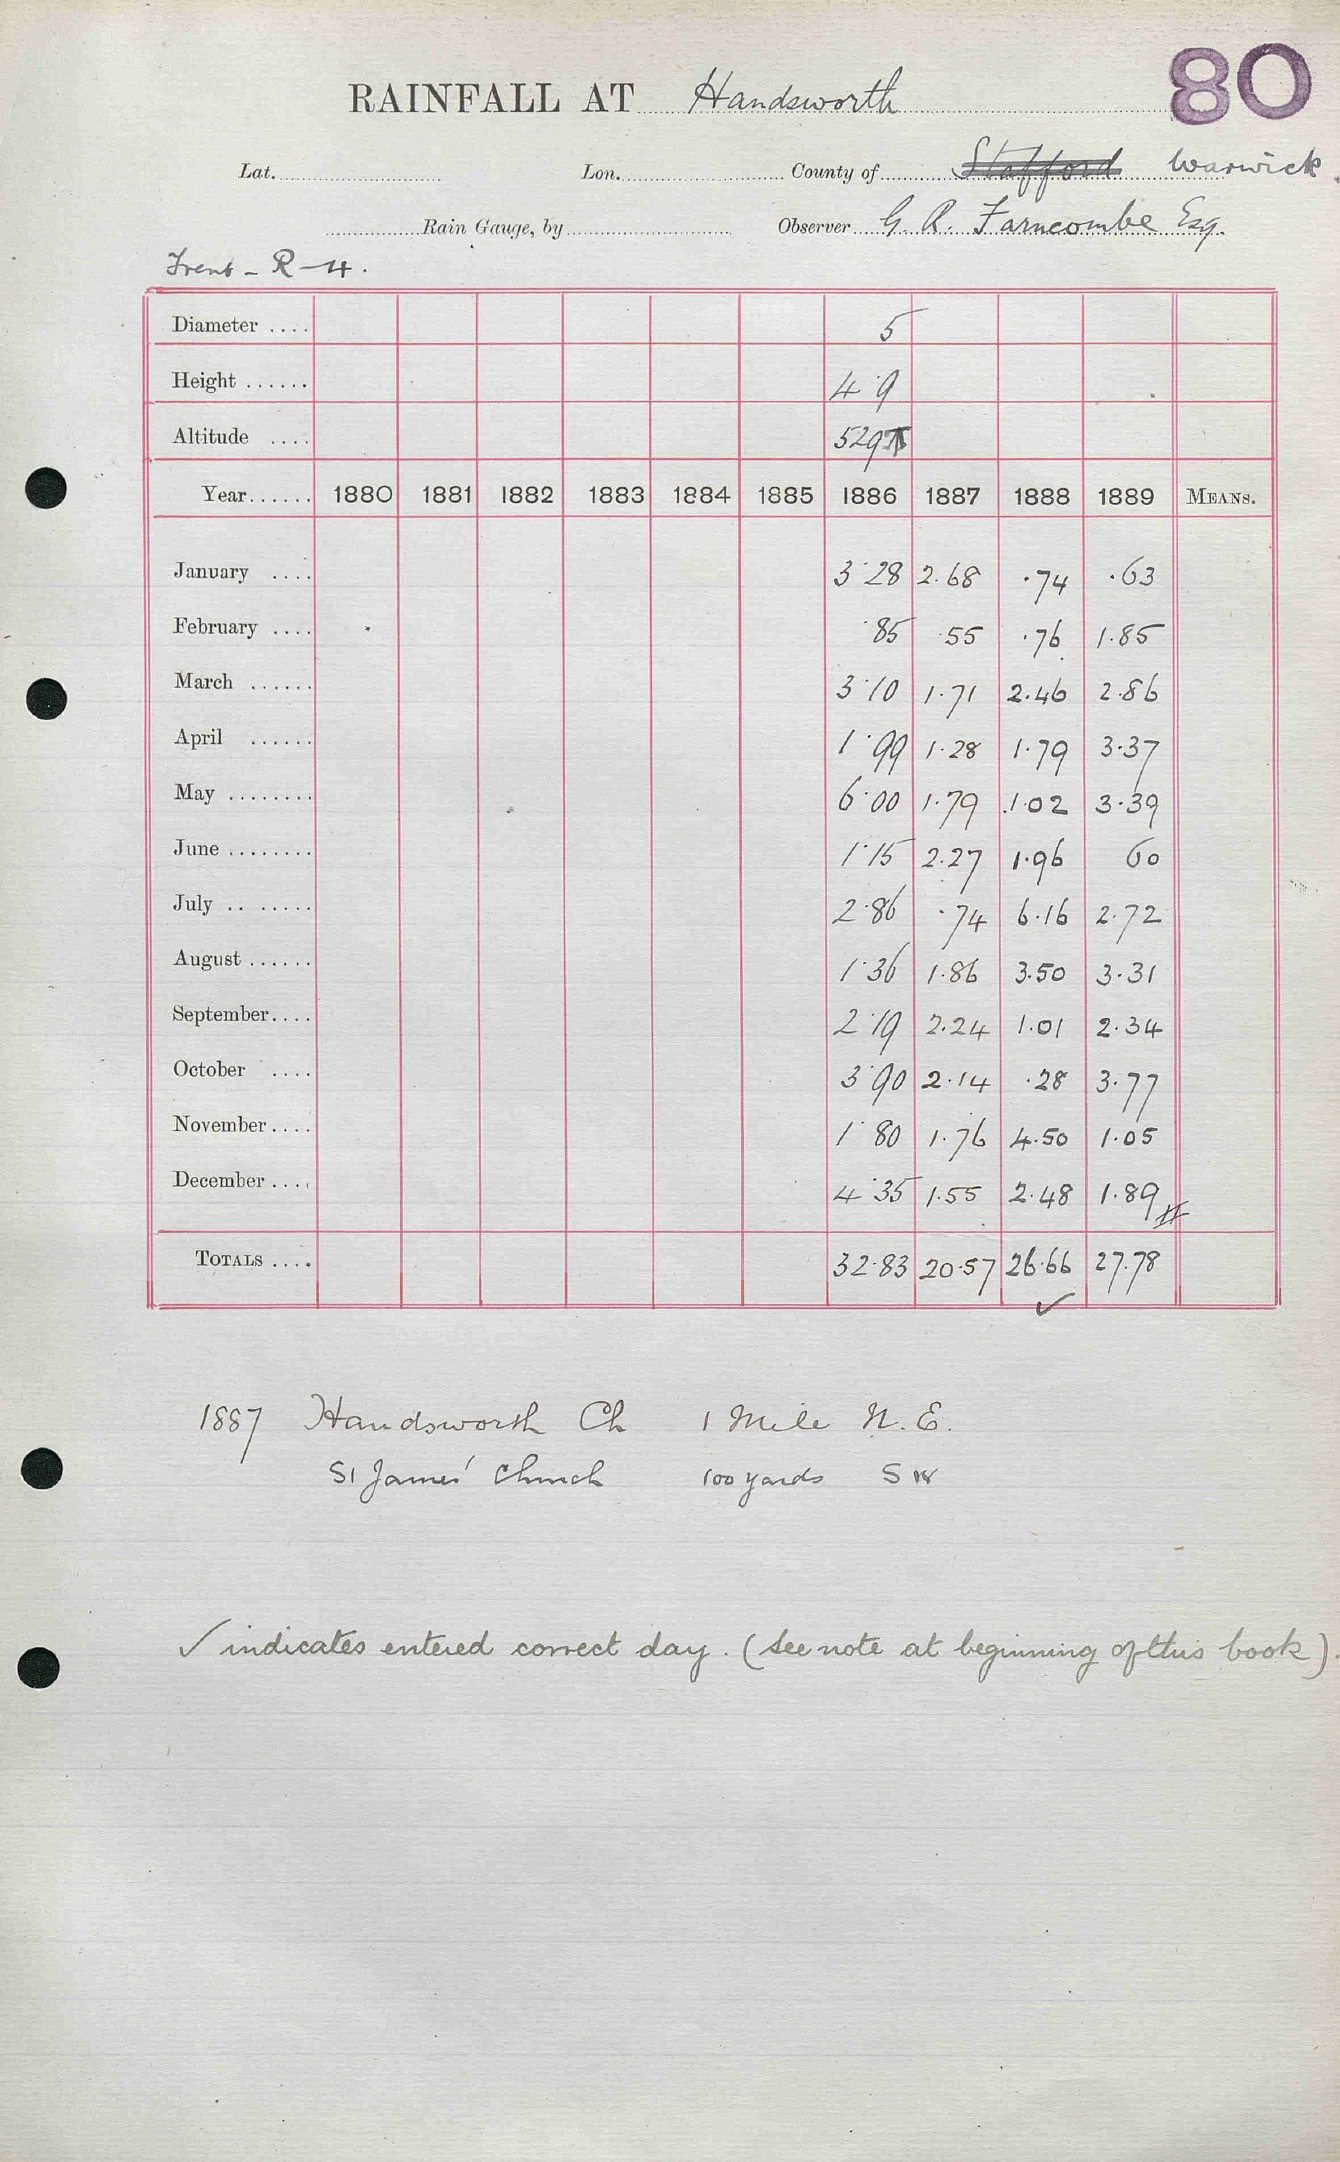 80
RAINFALL AT Handsworth
Lat. Lon. County of Stafford Warwick
Rain Gauge, by Observer G. R. Farncombe Esq.
Trent - R - 4.
Diameter .... 5
Height ...... 4·9
Altitude .... 529
Year...... 1880 1881 1882 1883 1884 1885 1886 1887 1888 1889 MEANS.
January .... 3·28 2.68 ·74 ·63
February .... ·85 ·55 ·76 1.85
March ...... 3·10 1·71 2.46 2.86
April ...... 1·99 1·28 1·79 3·37
May ........ 6·00 1·79 1·02 3·39
June ........ 1·15 2.27 1·96 60
July .. ..... 2·86 ·74 6·16 2·72
August ...... 1·36 1·86 3.50 3·31
September.... 2·19 2.24 1.01 2·34
October .... 3·90 2·14 ·28 3·77
November.... 1·80 1·76 4·50 1·05
December.... 4·35 1.55 2·48 1·89
TOTALS .... 32·83 20·57 26·66 27.78
✓
1887 Handsworth Ch 1 Mile N. E.
St James' Church 100 yards SW
✓ indicates entered correct day. (see note at beginning of this book).